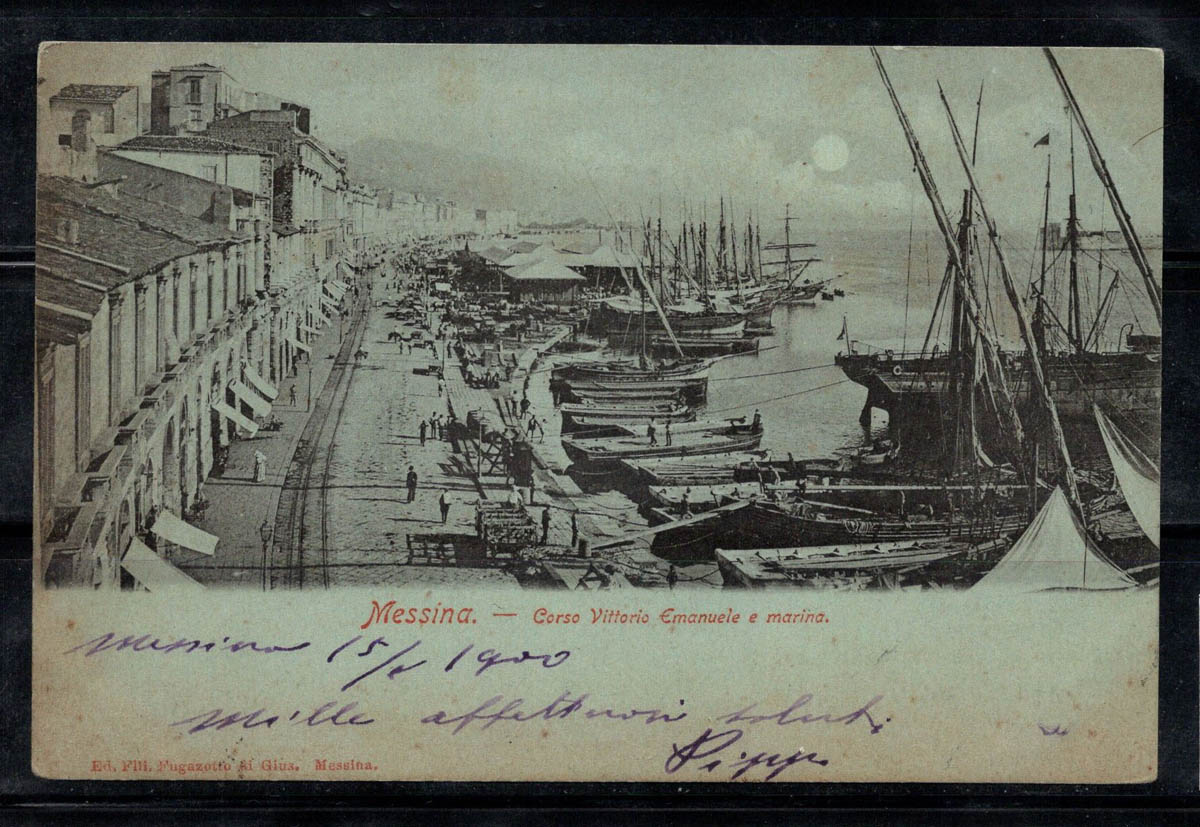 Messina. — Corso Vittorio Emanuele e marina.
Messina 15/ 1900
Mille affettuosi saluti
Pippo
Ed. Flli. Fugazotto di Gius. Messina.